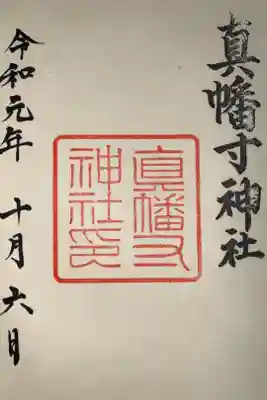 真幡寸神社
真幡寸
神社印
令和元年 十月六日